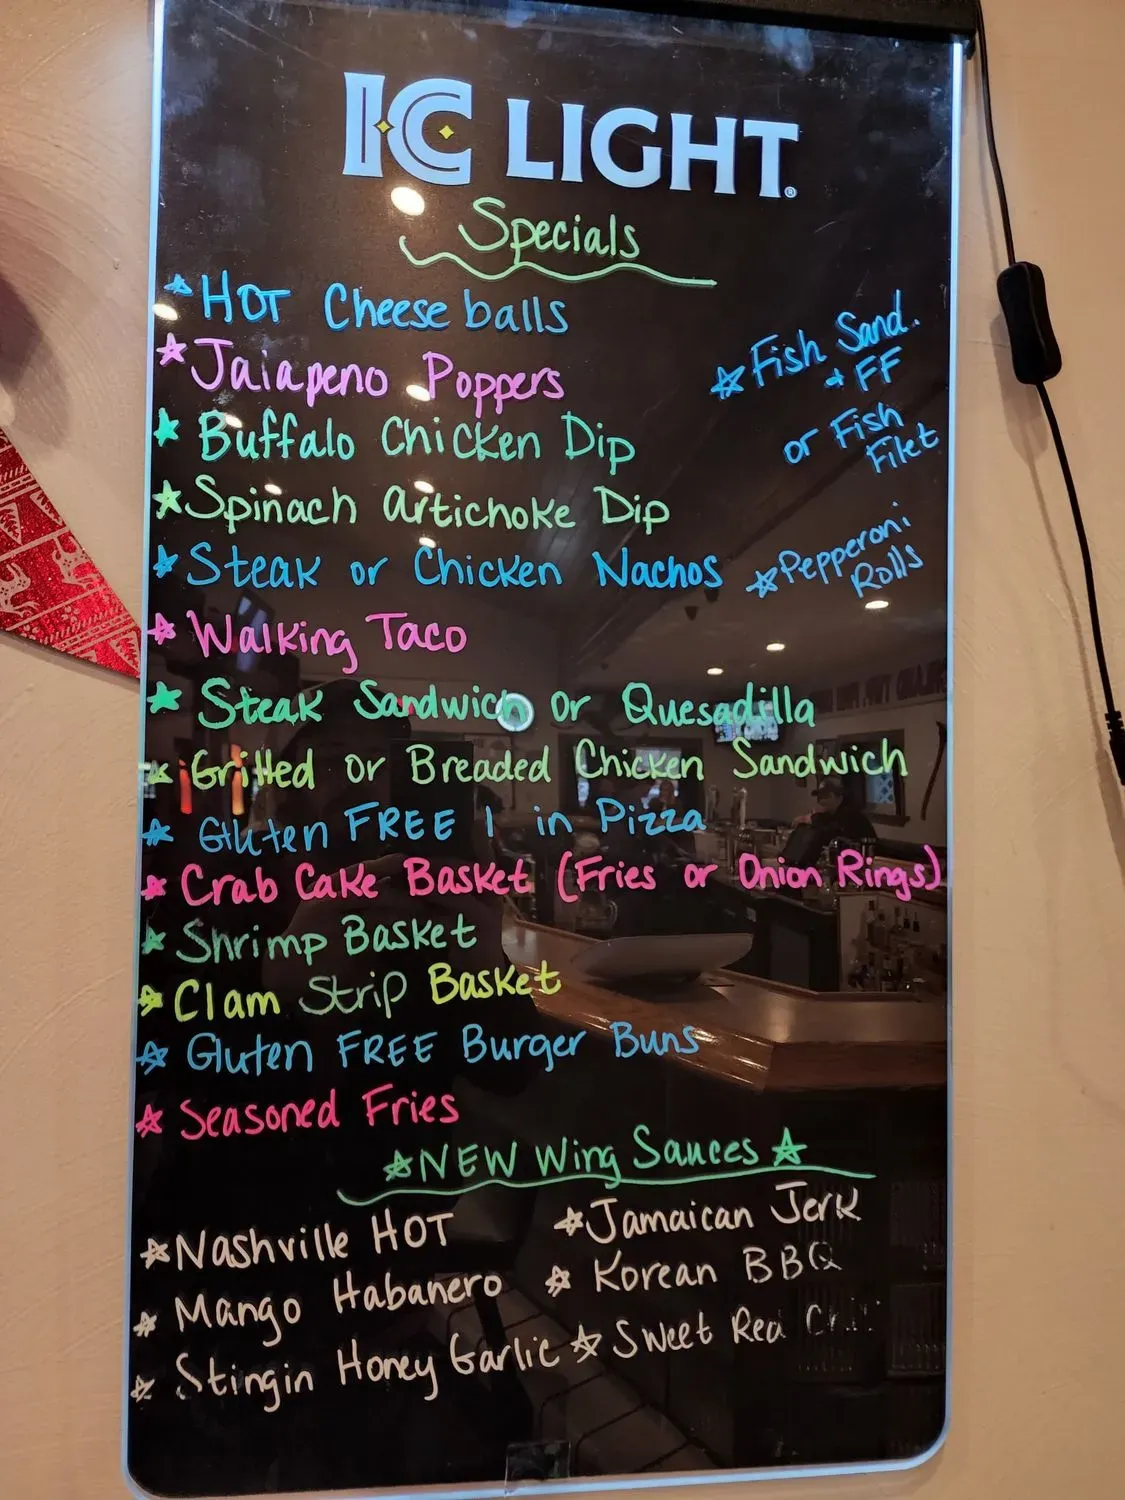 IC LIGHT®
Specials
* HOT Cheese balls
* Jalapeno Poppers
* Buffalo Chicken Dip
* Spinach Artichoke Dip
* Steak or Chicken Nachos
* Walking Taco
* Steak Sandwich or Quesadilla
* Grilled or Breaded Chicken Sandwich
* Gluten FREE 1 in Pizza
* Crab Cake Basket (Fries or Onion Rings)
* Shrimp Basket
* Clam Strip Basket
* Gluten FREE Burger Buns
* Seasoned Fries
* Fish Sand.
+ FF
or Fish
Filet
* Pepperoni
Rolls
* NEW Wing Sauces *
* Nashville HOT
* Mango Habanero
* Stingin Honey Garlic
* Jamaican Jerk
* Korean BBQ
* Sweet Red